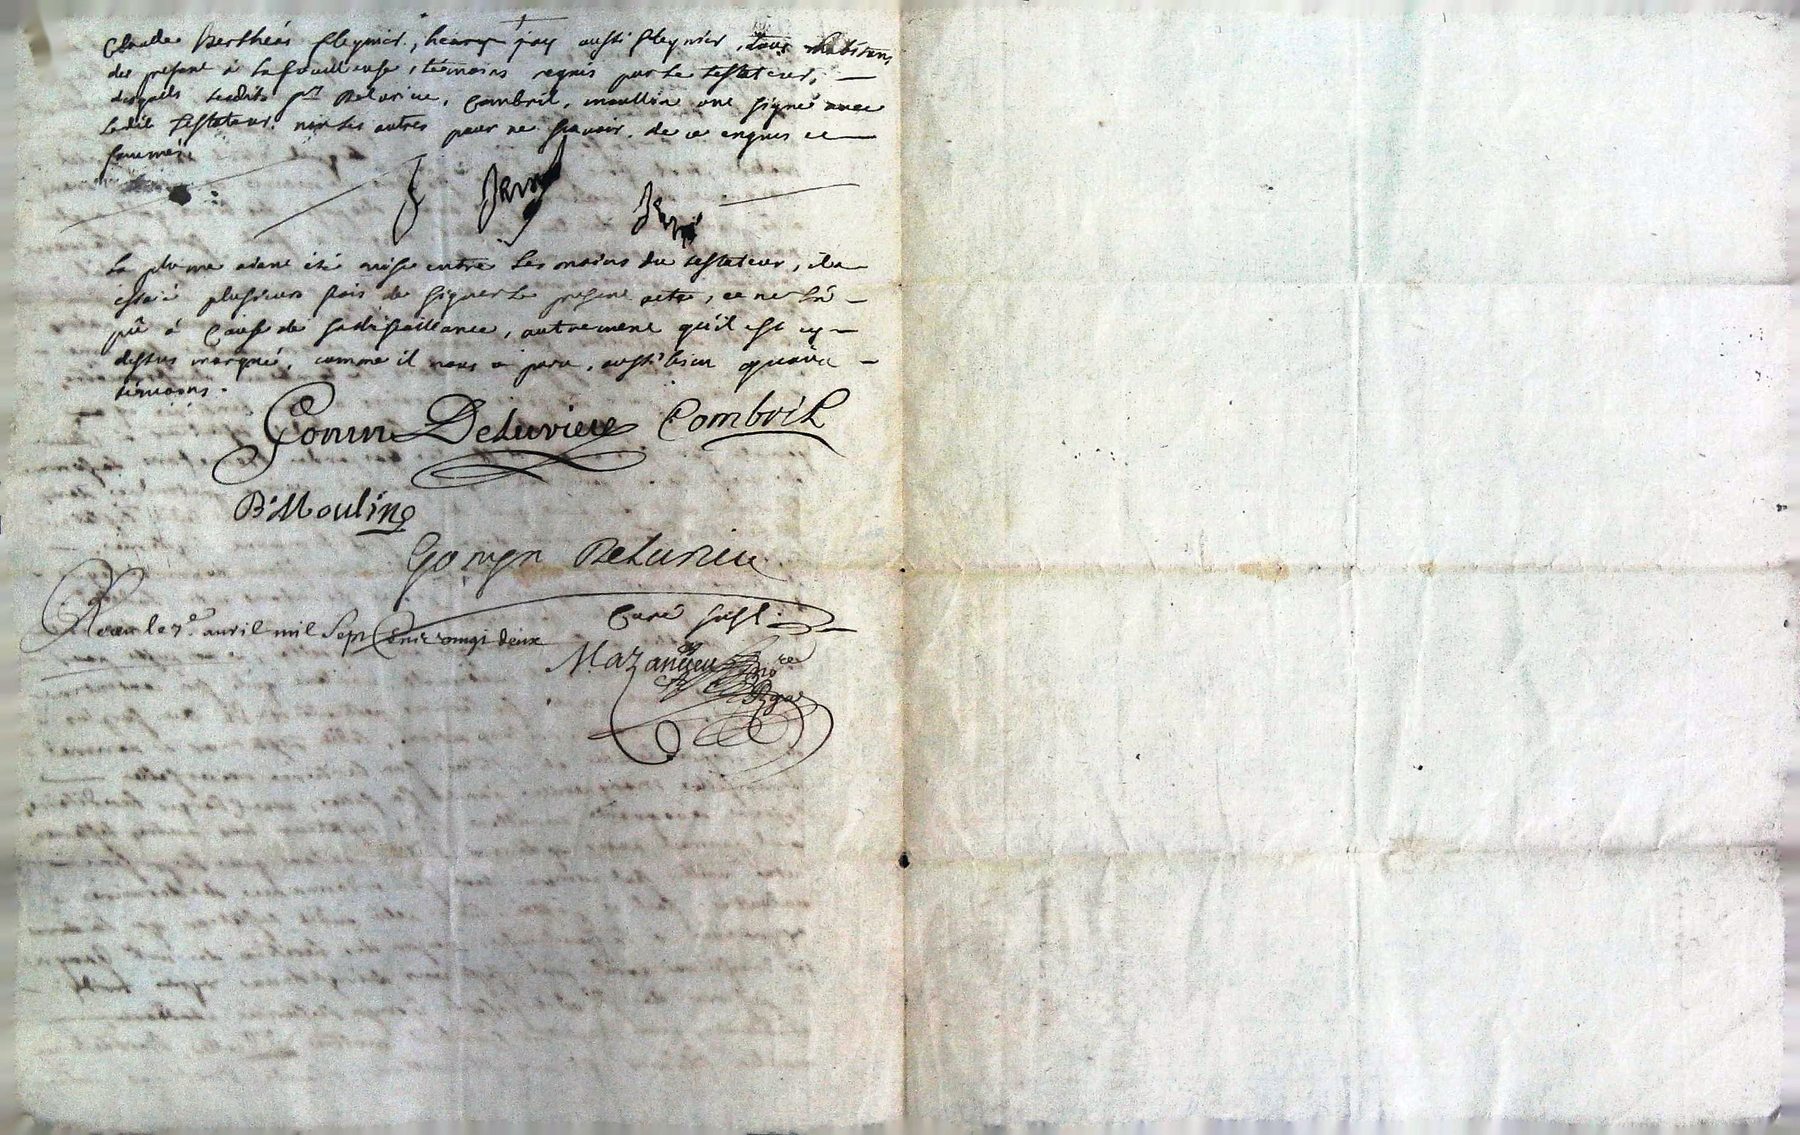 Claude Berthéas fleynier, henry jay aussi fleynier, tous habitans
de present à Lafouilleuse, témoins requis par le testateur,
desquels lesdits Delurieu, Combril, moullin ont signé avec
Ledit Testateur, non les autres pour ne sçavoir, de ce enquis et
sommés
La plume aiant été mise entre les mains du testateur, il a
essaié plusieurs fois de signer le present acte, ce ne l'a
pû à cause de sa defaillance, autrement qu'il est cy
dessus marqué, comme il nous a paru, aussi bien qu'aux
témoins.
Gonin Delurieu Combril
B. Mouling
Gonyn Delurieu
Curé susd.
Controlé avril mil Sept Cent vingt deux
Mazanieu